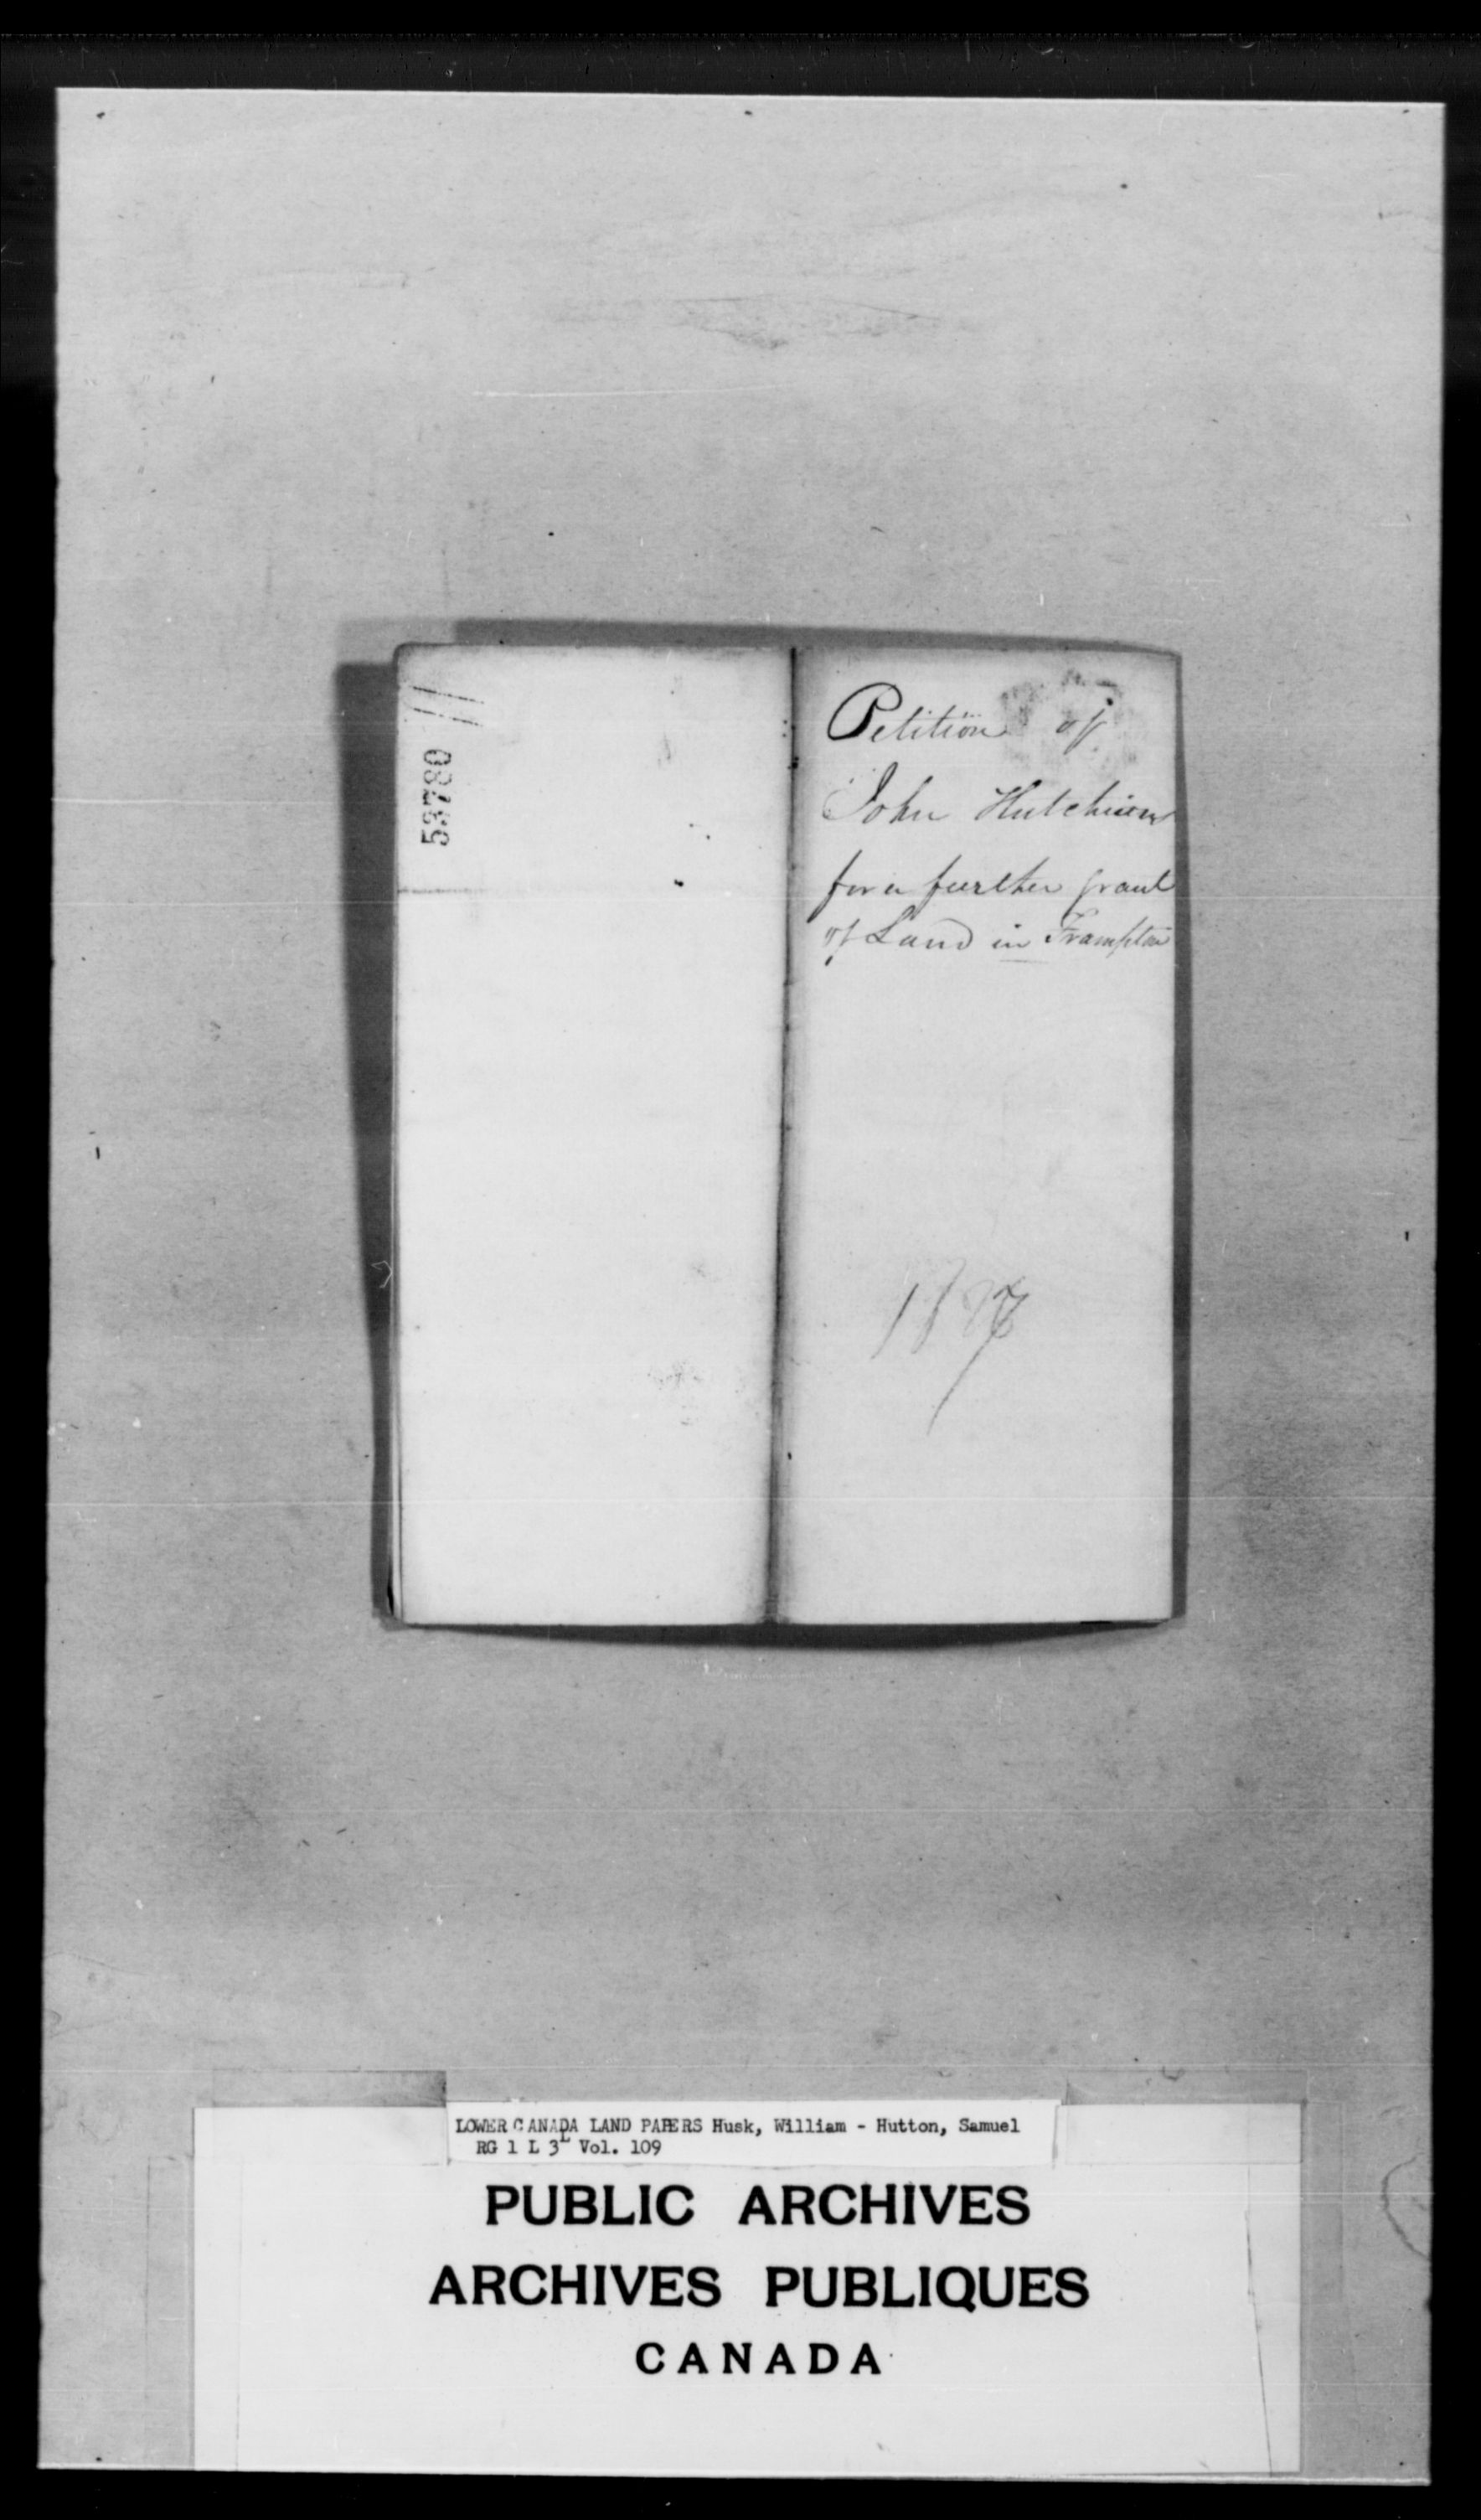 53780
Petition of
John Hutchison
for a further grant
of Land in Frampton
LOWER CANADA LAND PAPERS Husk, William - Hutton, Samuel
RG 1 L 3L Vol. 109
PUBLIC ARCHIVES
ARCHIVES PUBLIQUES
CANADA